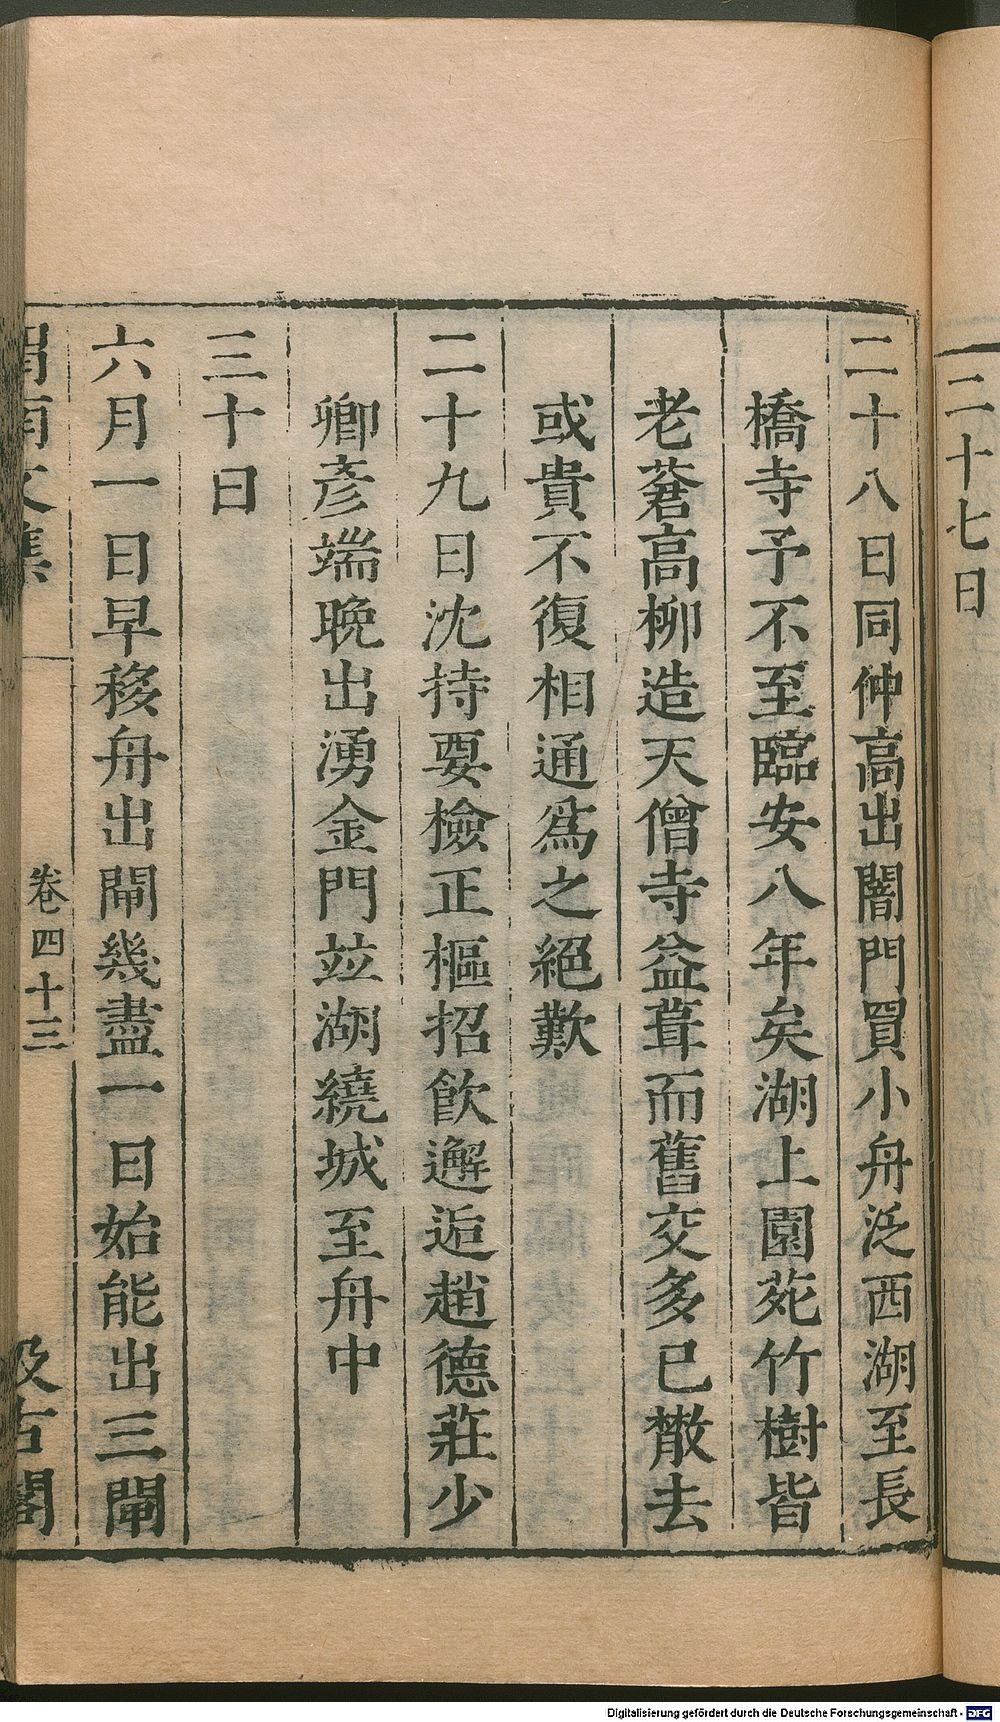 二十七日
二十八日同仲高出闇門買小舟泛西湖至長
橋寺予不至臨安八年矣湖上園苑竹樹皆
老蒼高柳造天僧寺益葺而舊交多已散去
或貴不復相通爲之絕歎
二十九日沈持要檢正樞招飲邂逅趙德莊少
卿彥端晩出湧金門竝湖繞城至舟中
三十日
六月一日早移舟出閘幾盡一日始能出三閘
渭南文集
卷四十三
汲古閣
Digitalisierung gefördert durch die Deutsche Forschungsgemeinschaft - DFG